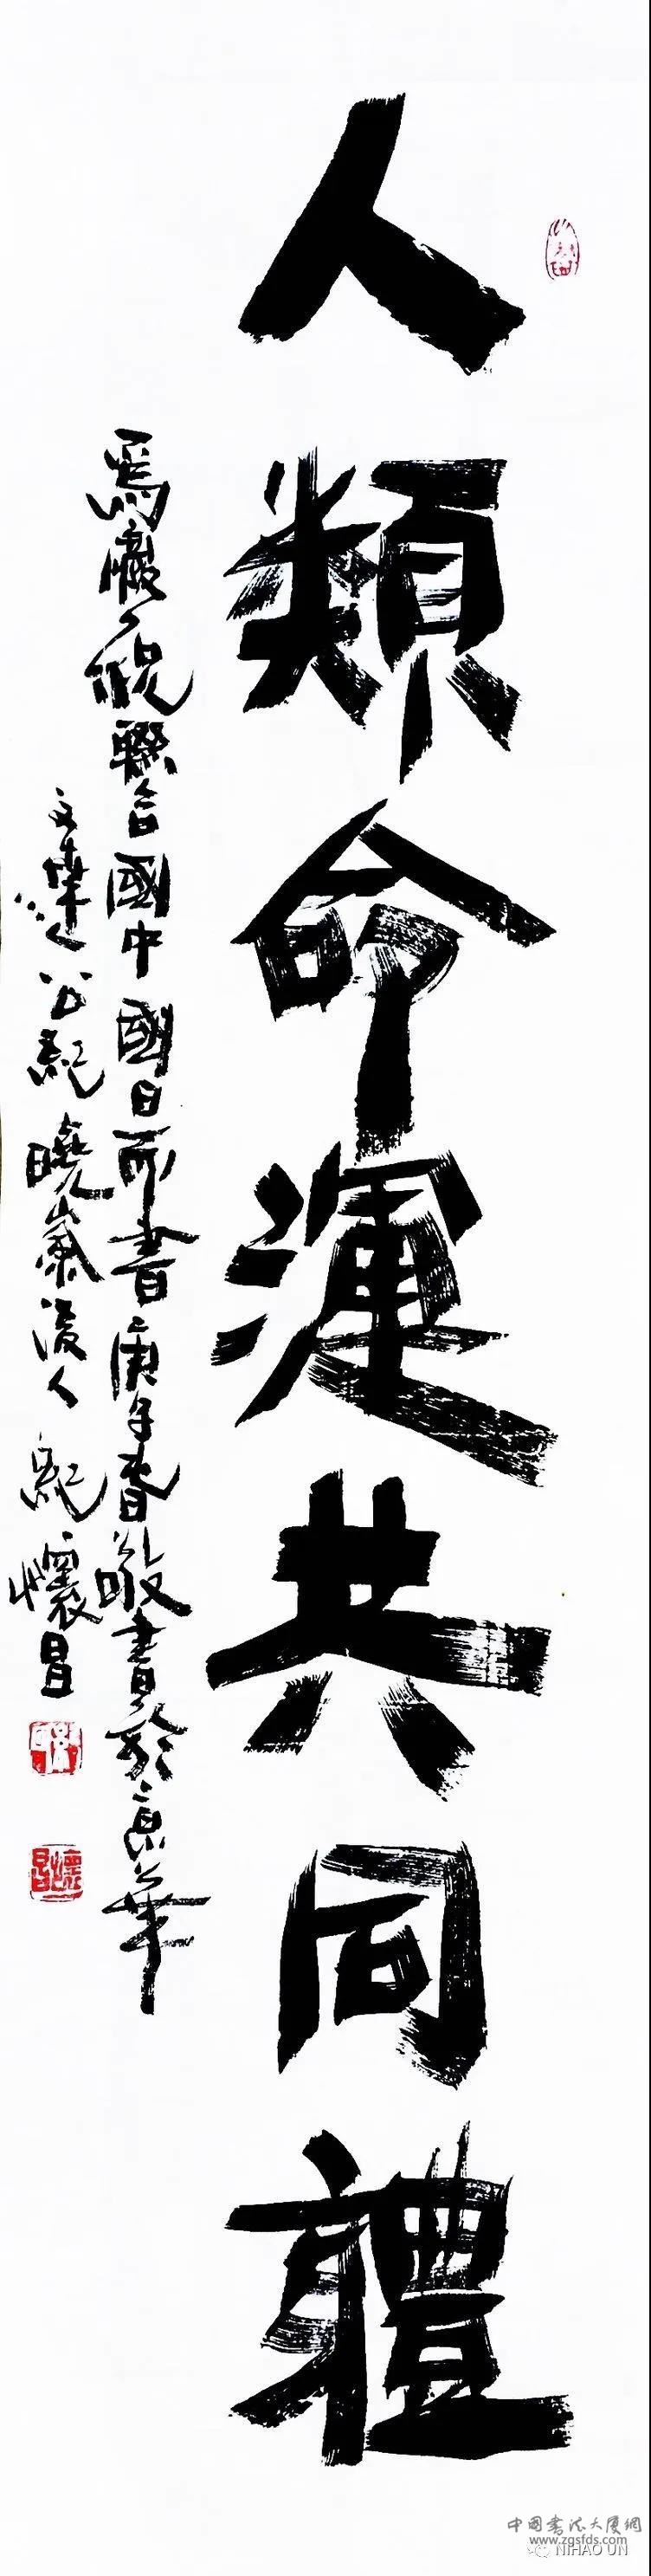 人類命運共同體
為慶祝聯合國中國日而書庚子春敬書於京華
文達公紀曉嵐後人紀懷昌
懷昌
中国书法大厦網
www.zgsfds.com
NIHAO UN